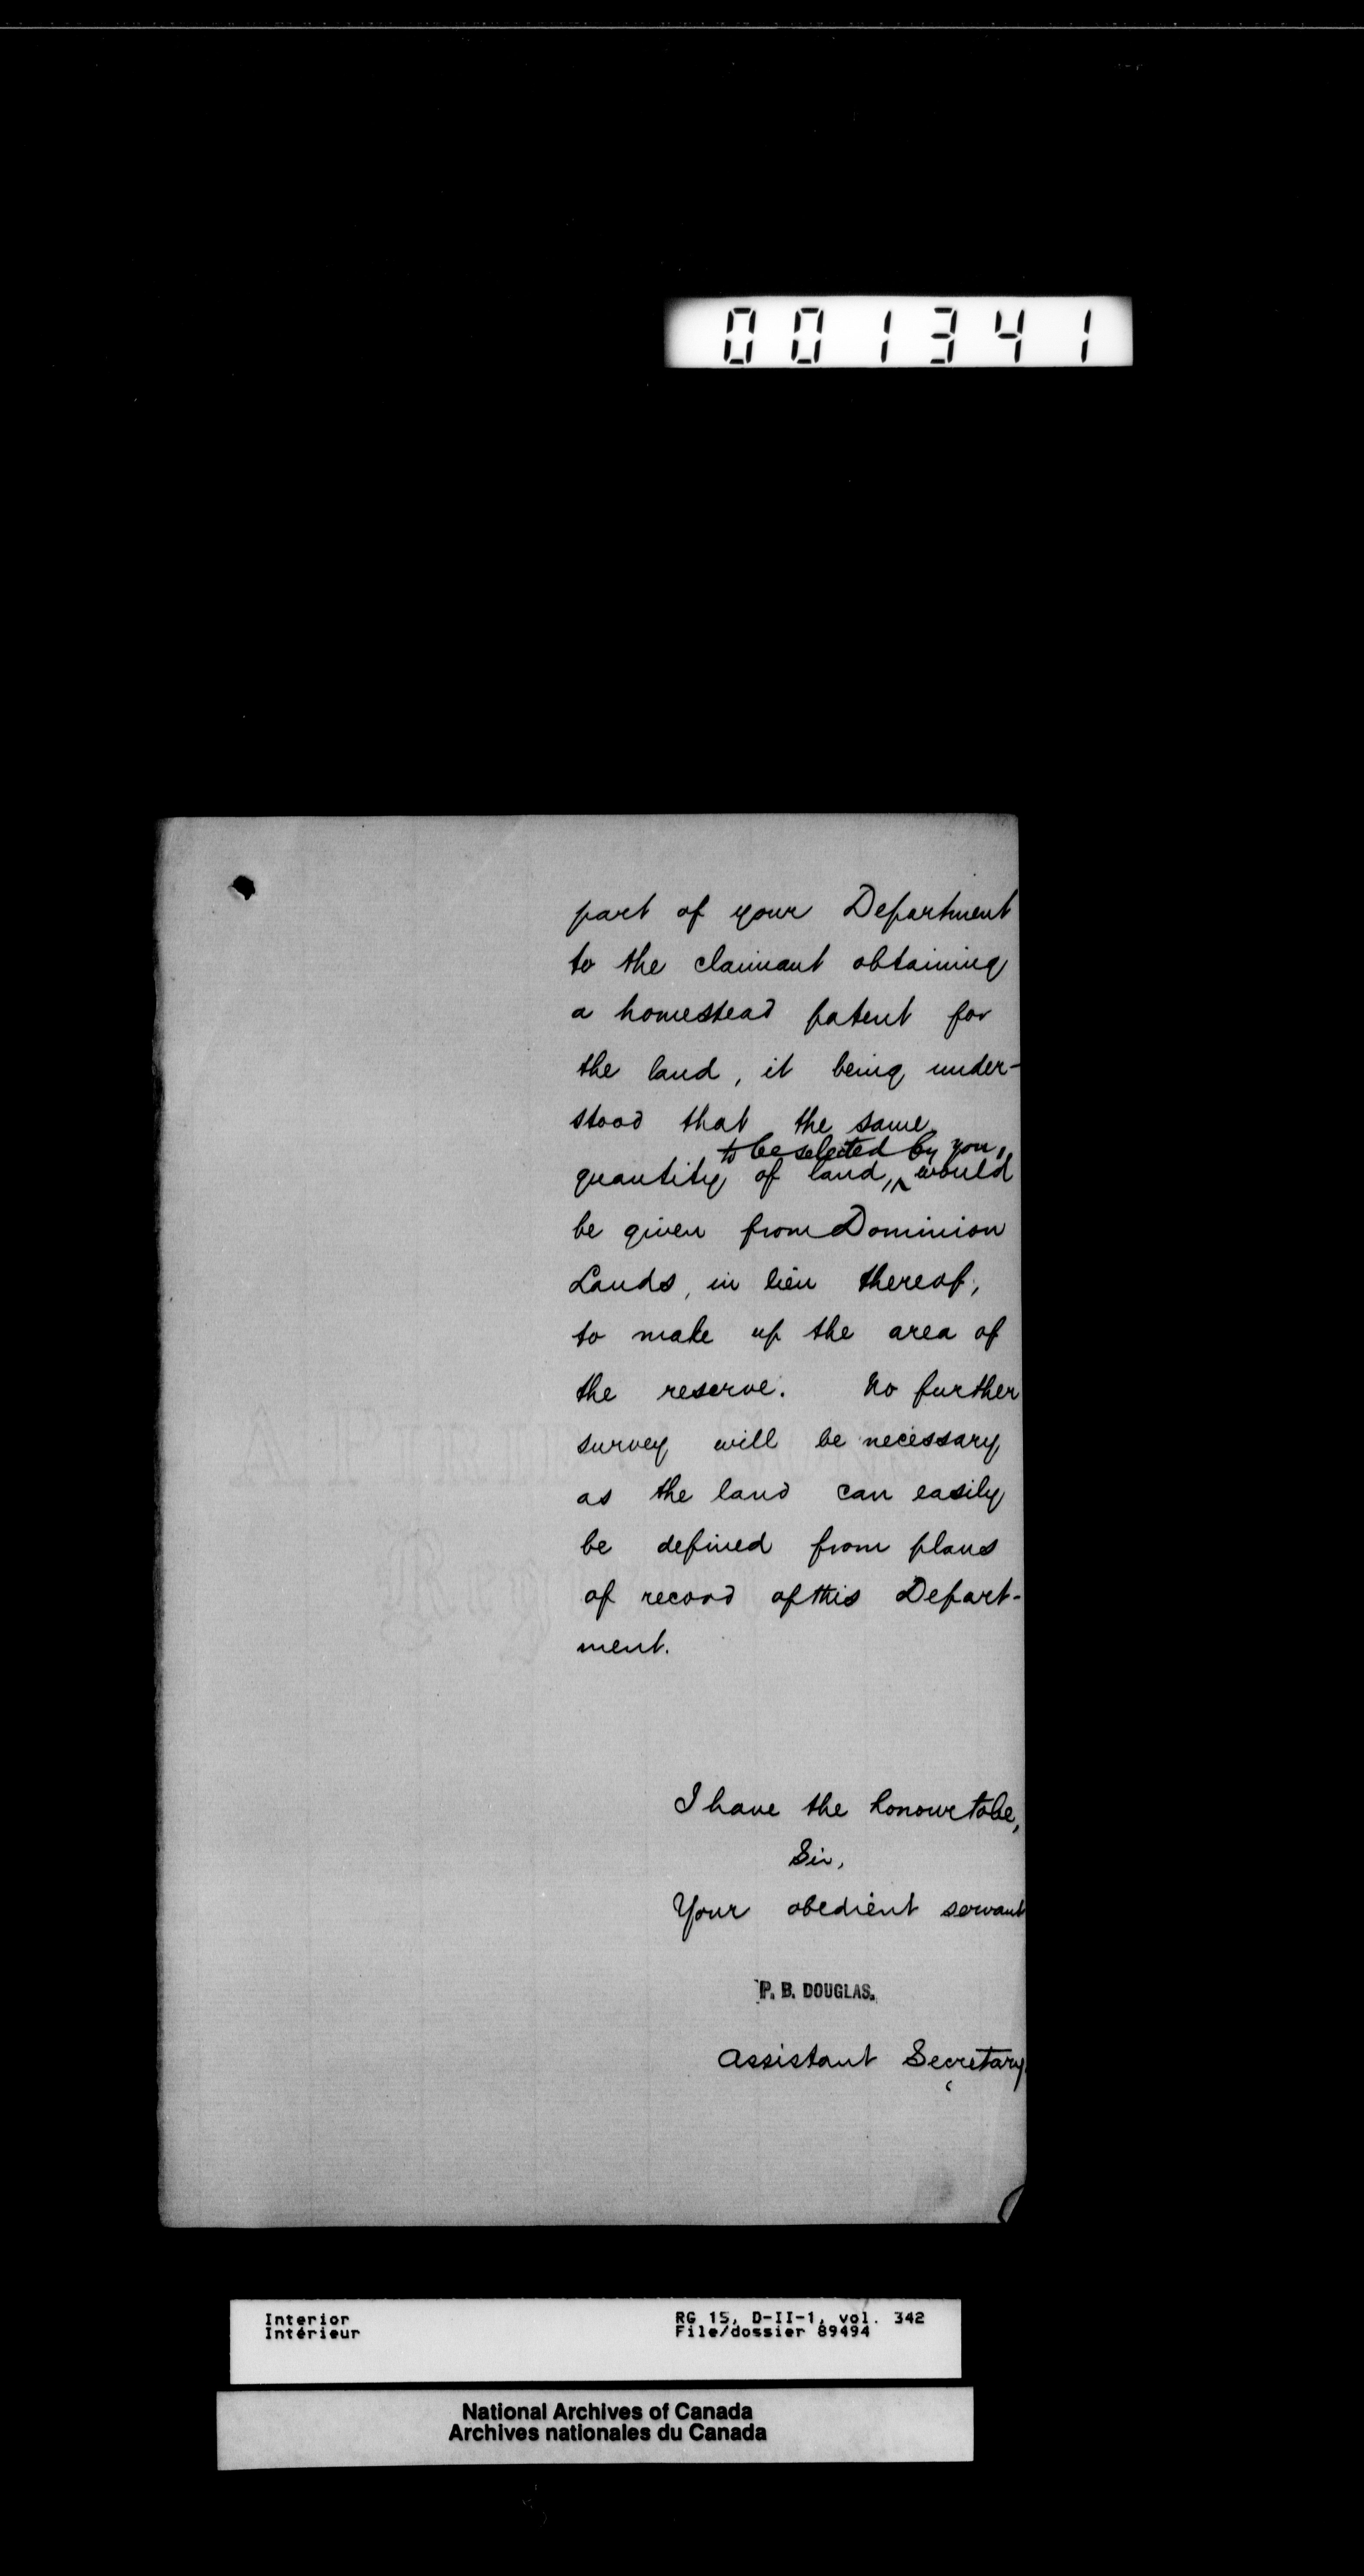 001341
part of your Department
to the claimant obtaining
a homestead patent for
the land, it being under-
stood that the same
to be selected by you,
quantity of land, ^ would
be given from Dominion
Lands, in lieu thereof,
to make up the area of
the reserve. No further
survey will be necessary
as the land can easily
be defined from plans
of record of this Depart-
ment.
I have the honour to be,
Sir,
Your obedient servant
P. B. DOUGLAS.
Assistant Secretary.
Interior RG 15, D-II-1, vol. 342
Intérieur File/dossier 89494
National Archives of Canada
Archives nationales du Canada